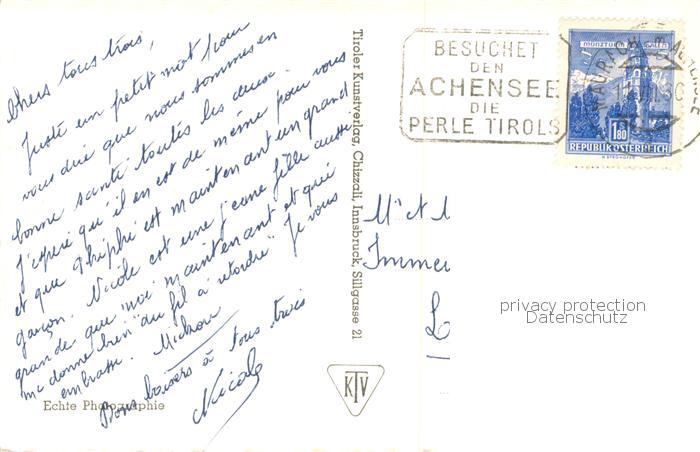 Chers tous trois,
Juste un petit mot pour
vous dire que nous sommes en
bonne santé toutes les deux.
J'espère qu'il en est de même pour vous
et que est maintenant un grand
garçon. Nicole est une jeune fille aussi
grande que "moi" maintenant et qui
me donne bien "du fil à retordre". Je vous
embrasse.
Bons baisers à tous trois
Nicole
Echte Photographie
Tiroler Kunstverlag, Chizzali, Innsbruck, Sillgasse 21
KTV
BESUCHET
DEN
ACHENSEE
DIE
PERLE TIROLS
MAURACH
MÜNZTURM HALL
1.80
REPUBLIK ÖSTERREICH
Mr et
Immeu
privacy protection
Datenschutz